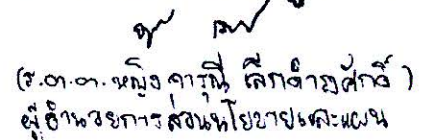 (ร.ต.ต.หญิง จารุณี เลิศดำรงศักดิ์)
ผู้อำนวยการส่วนนโยบายและแผน